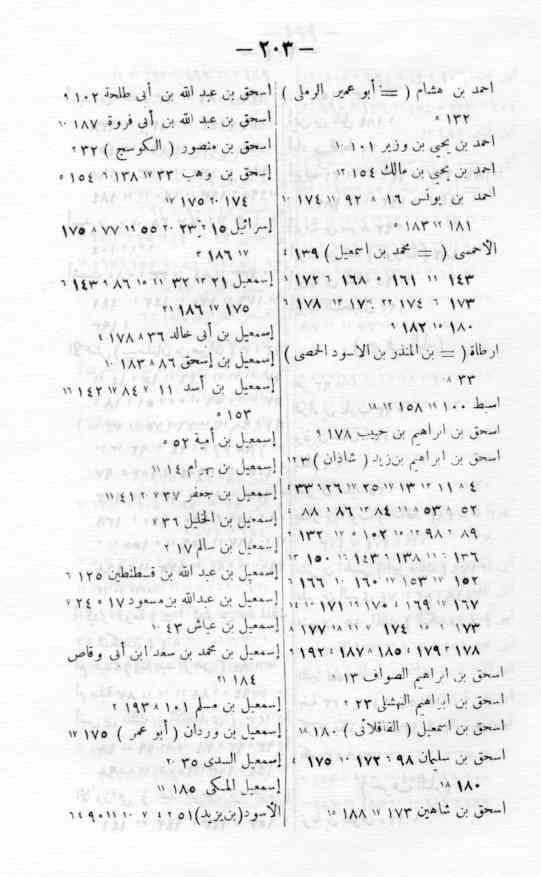 — ٢٠٣ —
احمد بن هشام ( = أبو عمير الرملى )
١٣٢ ٥
احمد بن يحيى بن وزير ١٠١ ١٠
احمد بن يحيى بن مالك ١٥٤ ١٢
احمد بن يونس ١٦ ٨ ٩٢ ١٧ ١٧٤ ١٠
١٨١ ١٢ ١٨٣ ٥
الاحمسى ( = محمد بن اسمعيل ) ١٣٩ ٤
١٤٣ ١١ ١٦١ ٥ ١٦٨ ٦ ١٧٢
١٧٣ ٦ ١٧٤ ٢٢ ١٧٠ ١٣ ١٧٨ ٦
١٨٠ ١٥ ١٨٢ ٩
ارطاة ( = بن المنذر بن الاسود الحمصى )
٣٣ ٨
اسبط ١٠٠ ١٩ ١٥٨ ١٢ ١٨
اسحق بن ابراهيم بن حبيب ١٧٨ ٩
اسحق بن ابراهيم بن زيد ( شاذان ) ٣ ١٢
٤ ٨ ١١ ١٢ ١٣ ١٧ ٢٥ ١٧ ٢٦ ٩ ٣٣
٥٢ ٨ ٥٣ ١١ ٨٤ ١٢ ٨٦ ١ ٨٨
٨٩ ٢ ٩٨ ١٥ ١٠٢ ٥ ١٣٢
١٣٦ ١١ ١٣٨ ٩ ١٤٣ ١٥٠ ١٣
١٥٢ ١٧ ١٥٣ ١٦٠ ١٠ ١٦٦ ٦
١٦٧ ١٧ ١٦٩ ٤ ١٧٠ ١٩ ١٧١ ١٤
١٧٣ ١٧٤ ١٧٧ ٨
١٧٨ ٢ ١٧٩ ٤ ١٨٥ ٨ ١٨٧ ٤ ١٩٢ ٦
اسحق بن ابراهيم الصواف ١٣
اسحق بن ابراهيم النهشلى ٢٣ ٢
اسحق بن اسمعيل ( القافلانى ) ١٨٠ ١٨
اسحق بن سليمان ٩٨ ٦ ١٧٢ ١٠ ١٧٥ ٤
١٨٠ ١٨
اسحق بن شاهين ١٧٣ ١٧ ١٨٨ ١٥
اسحق بن عبد الله بن أبى طلحة ١٠٢ ٩
اسحق بن عبد الله بن أبى فروة ١٨٧ ١٠
اسحق بن منصور ( الكوسج ) ٣٢ ٢
إسحق بن وهب ٣٣ ١٧ ١٣٨ ٦ ١٥٤ ٥
١٧٤ ٢٠ ١٧٥ ١٧
إسرائيل ١٥ ٢ ٢٣ ٢٠ ٥٥ ١٩ ٧٧ ٨ ١٧٥
١٧ ١٨٦ ٣
إسمعيل ٢١ ١٢ ٣٢ ٢١ ٨٦ ١٥ ١٤٣ ٩ ٦
١٧٥ ١٧ ١٨٦ ٢١
إسمعيل بن أبى خالد ٣٦ ٨ ١٧٨ ٤
إسمعيل بن إسحق ٨٦ ٨ ١٨٣ ١٠
إسمعيل بن أسد ١١ ٧ ٨٤ ١٧ ١٤٢ ١٦
١٥٣ ٥
إسمعيل بن أمية ٥٢ ٥
إسمعيل بن بهرام ١٤ ١١
إسمعيل بن جعفر ٣٧ ٢٠ ٤١ ١١
إسمعيل بن الخليل ٣٦ ٥
إسمعيل بن سالم ١٧ ٢
إسمعيل بن عبد الله بن قسطنطين ١٢٥ ٦
إسمعيل بن عبدالله بن مسعود ١٧ ٥ ٢٤ ٧
إسمعيل بن عياش ٤٣ ١٠
إسمعيل بن محمد بن سعد ابن أبى وقاص
١٨٤ ٢١
إسمعيل بن مسلم ١٠١ ٨ ١٩٣ ٢
إسمعيل بن وردان ( أبو عمر ) ١٧٥ ١٧
إسمعيل السدى ٣٥ ٢٠
إسمعيل المكى ١٨٥ ١١
الأسود ( بن يزيد ) ٥١ ٢ ٤ ٧ ١٠ ١١ ٩٠ ٤ ٦